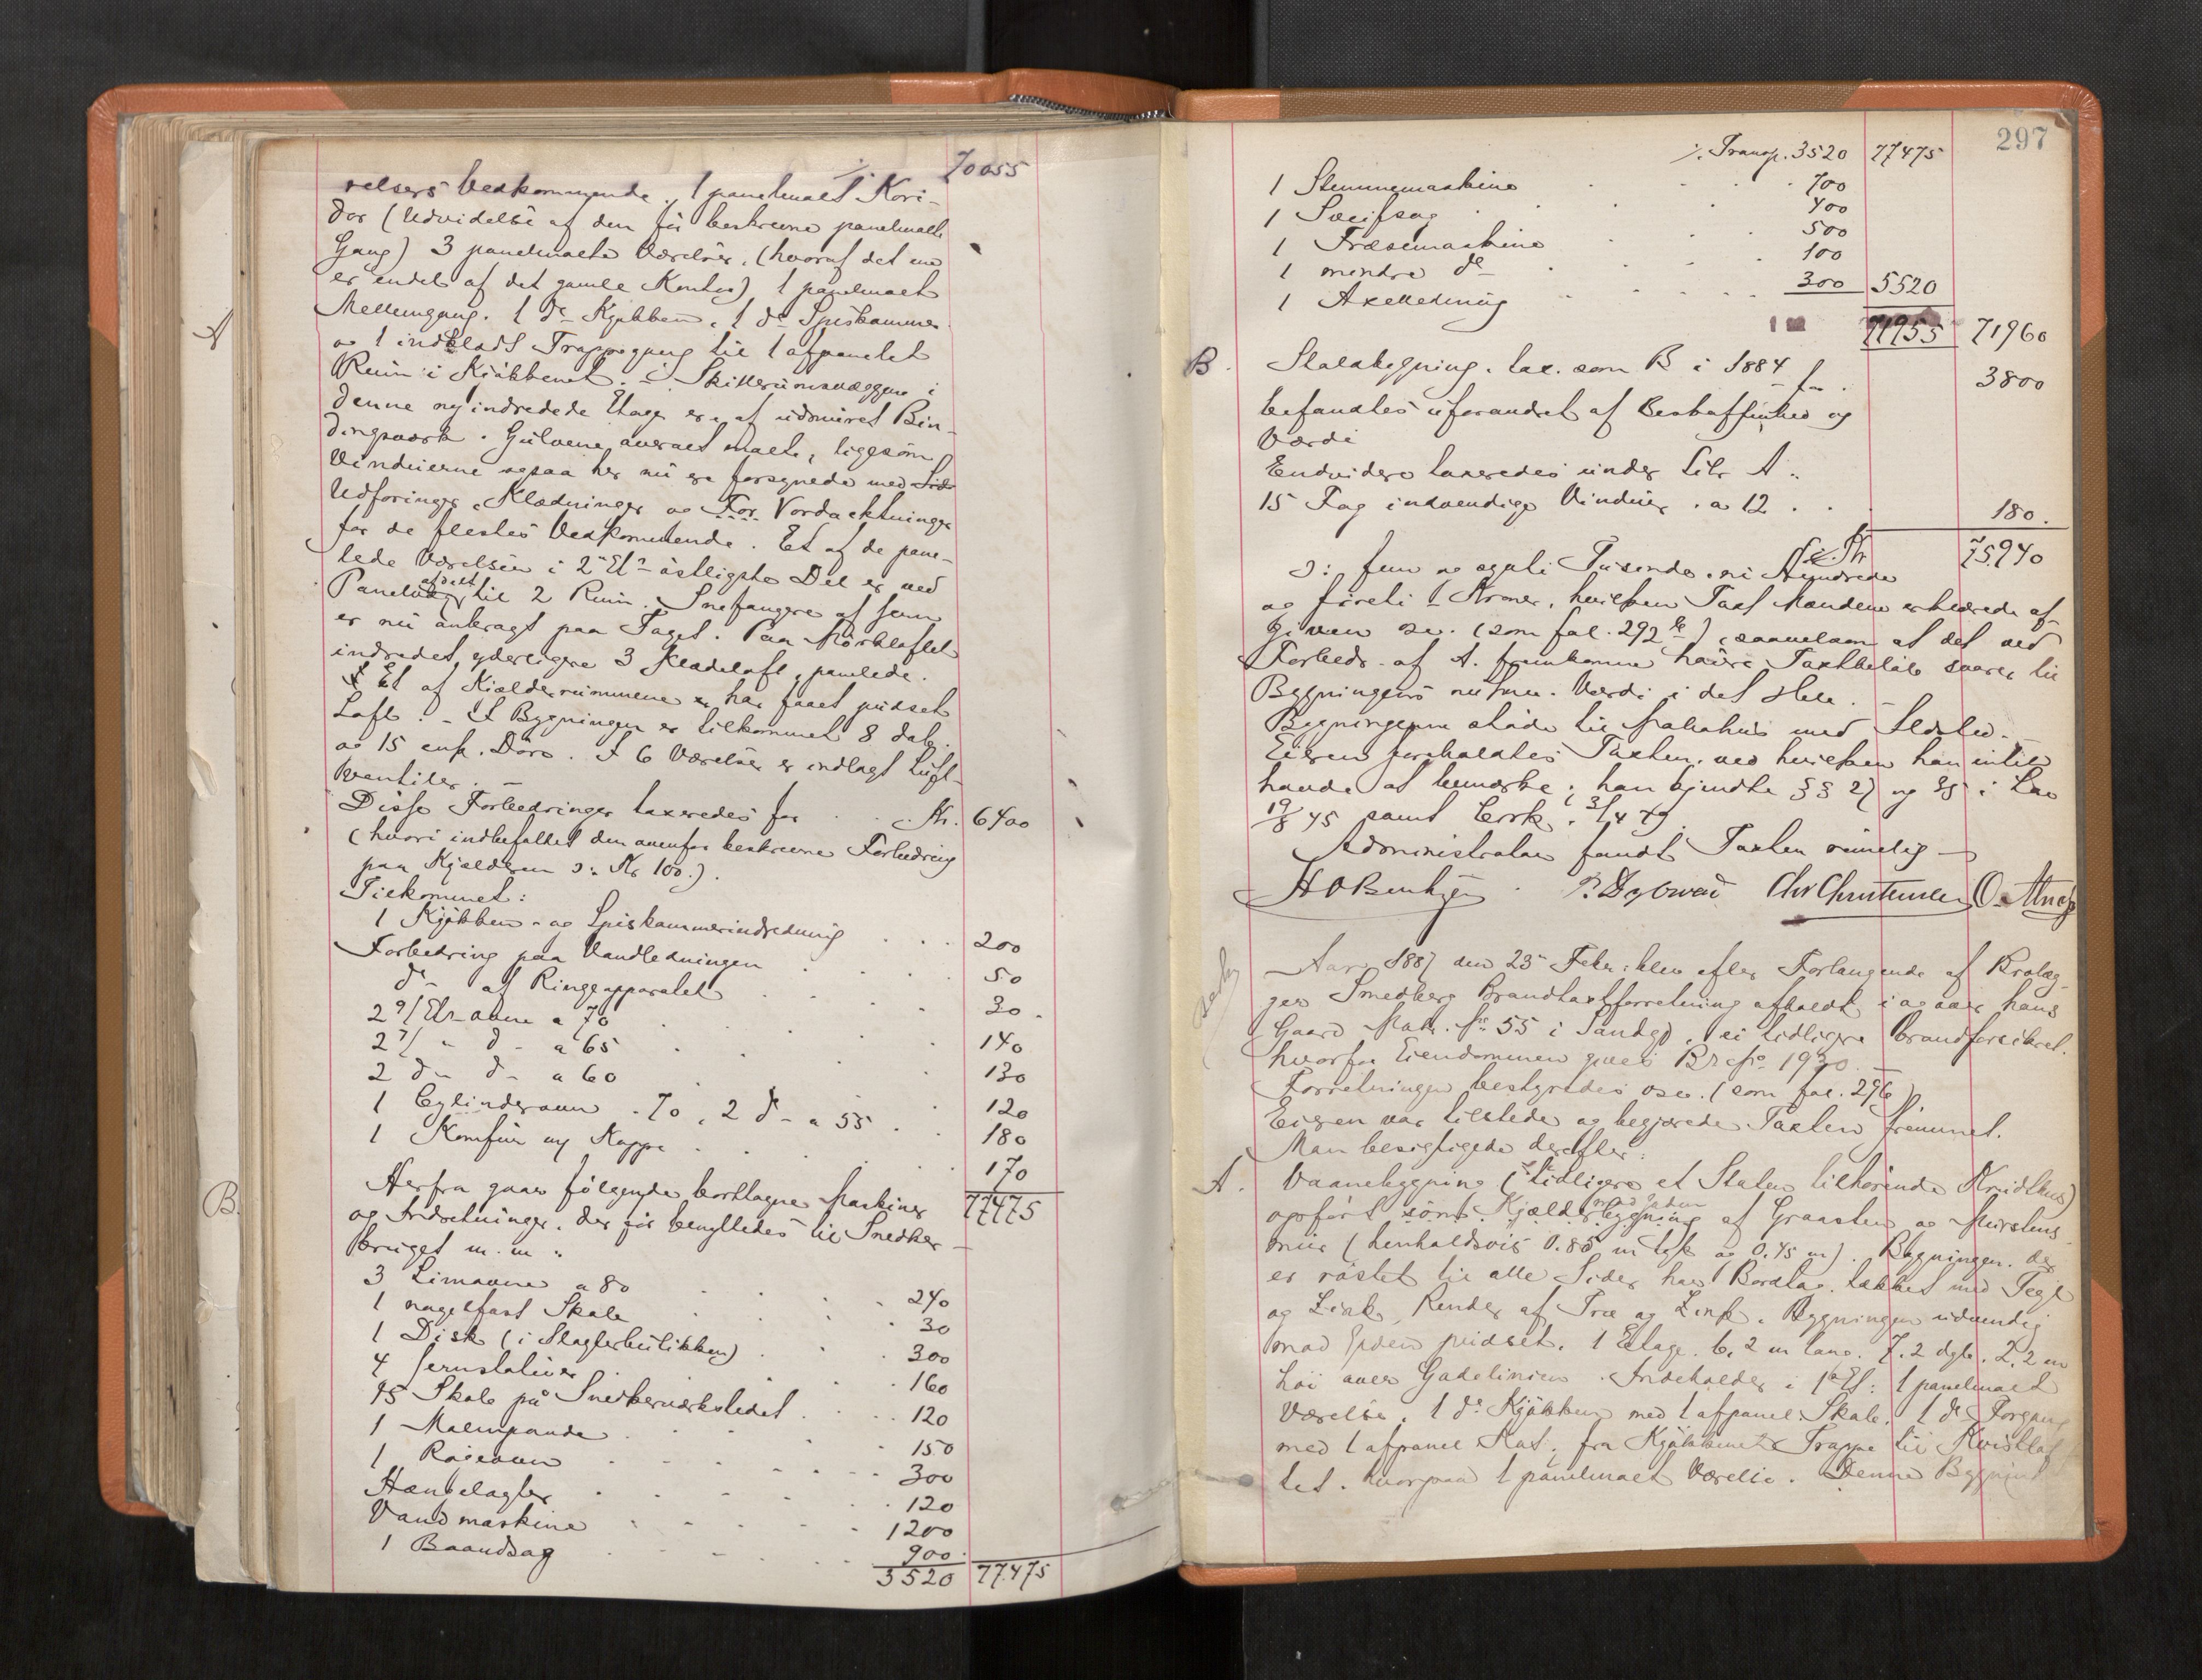 % 70055
relsers Vedkommende. 1 panelmalt Kori-
dor (Udvidelse af den før beskrevne panelmalte
Gang) 3 panelmalte Værelser, (hvoraf det ene
er endel af det gamle Kontor) 1 panelmalt
Mellemgang. 1 do Kjøkken, 1 do Spiskammer
og 1 indklædt Trappegang til 1 afpanelet
Rum i Kjøkkenet. – Skillerumsvæggene i
denne nyindredede Etage er af udmuret Bin-
dingsværk. Gulvene overalt malte, ligesom
Vinduerne ogsaa her nu er forsynede med
Udforinger, Klædninger og For Vordaktninger
for de flestes Vedkommende. Et af de pane-
lede Værelser i 2 Et østligste Del er ved
Panelvæg afdelt til 2 Rum. Snefangere af Jern
er nu anbragt paa Taget. Paa Mørkloftet
indredet yderligere 3 Klædeloft, panelede.
Et af Kjælderrummene har faaet pudset
Loft. – I Bygningen er tilkommet 8 dob.
og 15 enk. Døre. I 6 Værelser er indlagt Luft-
ventiler. –
Disse Forbedringer taxeredes for . . Kr. 6400
(hvori indbefattet den ovenfor beskrevne Forbedring
paa Kjælderen ɔ: Kr 100.).
Tilkommet:
1 Kjøkken- og Spiskammerindredning . . . 200
Forbedring paa Vandledningen . . . 50
do af Ringeapparatet . . . 30.
2 9/ Et-ovne a 70 . . . 140
2 7/ " d- a 65 . . . 130
2 d- d- a 60 . . . 120
1 Cylinderovn - 70, 2 d- a 55 . . 180
1 Komfur m/ Kappe . . . 170
77475
Herfra gaar følgende borttagne Maskiner
og Indretninger, der før benyttedes til Snedker-
bruget m. m.
3 Limovne a 80 . . . 240
1 nagelfast Skab . . . 30
1 Disk (i Slagterbutikken) . . . 300
4 Jernstativer . . . 160
15 Skab på Snedkerværkstedet . . . 120
1 Malmpande . . . 150
1 Røgeovn . . . 300
Hænelagter . . . 120
Vandmaskine . . . 1200
1 Baandsag . . . 900.
3520 77.475
A
B.
297
% Transp. 3520 77475
1 Stemmemaskine . . . 700
1 Sveifsag . . . 400
1 Fræsemaskine . . . 500
1 mindre do . . . 100
1 Axelledning . . . 300 5520
71955 71960
B. Staldbygning, tax. som B i 1884 f.. 3800
befandtes uforandret af Beskaffenhed og
Værdi
Endvidere taxeredes under Litr A..
15 Fag indvendige Vinduer, a 12 . . 180.
Kr. 75.940
ɔ: fem og sytti Tusende, ni Hundrede
og førti – Kroner, hvilken Taxt Mændene erklærede af-
given osv. (som fol. 292 b), saavelsom at det ved
Forbedr. af A. fremkomne høire Taxtbeløb svarer til
Bygningens nuhav. Værdi i det Hele. –
Bygningerne støde til Nabohus med Ildsted. –
Eieren foreholdtes Taxten, ved hvilken han intet
havde at bemærke; han kjendte §§ 27 og 38 i Lov
19/8 45 samt Cirk. 3/4 49.
Administrator fandt Taxten rimelig –
P. Dybwad Chr Christensen
Aar 1887 den 25 Febr. blev efter Forlangende af Brolæg-
ger Smedberg Brandtaxtforretning afholdt i og over hans
Gaard Matr. No 55 i Sandgd, ei tidligere brandforsikret.
hvorfor Eiendommen gives Br. No 1930. –
Forretningen bestyredes osv. (som fol. 296).
Eieren var tilstede og begjærede Taxten fremmet.
Man besigtigede derefter:
A. Vaanebygning (tidligere et Staten tilhørende Krudthus)
opført som Kjælderbygning af Graasten og Murstens-
mur (henholdsvis 0.85 m tyk og 0.45 m). Bygningen, der
er røstet til alle Sider har Bordtag, tækket med Tegl
og Zink, Render af Træ og Zink. Bygningen udvendig
mod Gaden pudset. 1 Etage. 6.2 m lang. 7.2 dyb. 2.2 m
høi over Gadelinien. Indeholder i 1ste Et: 1 panelmalt
Værelse, 1 do Kjøkken med 1 afpanel. Skab. 1 do Forgang
med 1 afpanel Kot; fra Kjøkkenet Trappe til Kvistlof-
tet, hvorpaa 1 panelmalt Værelse. Denne Bygning